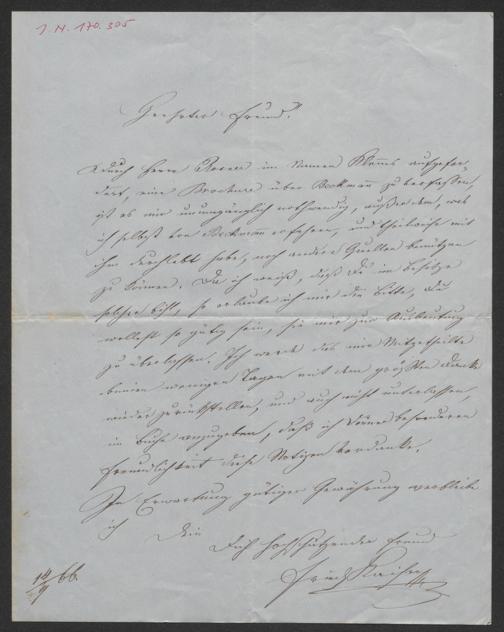 I. N. 170.305
Geehrter Freund!
Durch Herrn im Namen Klemms aufgefor-
dert, eine Brochure über Beckmann zu verfassen,
ist es mir unumgänglich nothwendig, außer dem, was
ich selbst von Beckmann erfahren, und theilweise mit
ihm durchlebt habe, noch andere Quellen benützen
zu können. Da ich weiß, daß du im Besitze
solcher bist, so erlaube ich mir die Bitte, du
wollest so gütig sein, sie mir zur Ausbeutung
zu überlassen. Ich werde das mir Mitgetheilte
binnen wenigen Tagen mit dem größten Danke
wieder zurückstellen, und auch nicht unterlassen,
im Buche anzugeben, daß ich Deiner besonderen
Freundlichkeit diese Notizen verdanke.
In Erwartung gütiger Gewährung verbleibe
ich Dein
Dich hochschätzender Freund
Fried Kaiser
14/9 66.